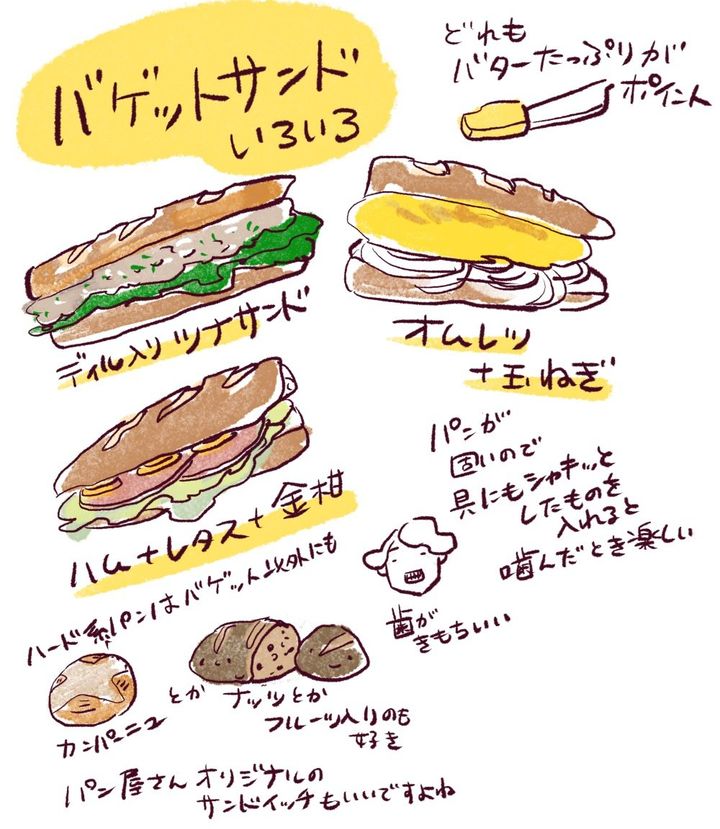 バゲットサンド
いろいろ
どれも
バターたっぷりが
ポイント
ディル入りツナサンド
オムレツ
+玉ねぎ
ハム+レタス+金柑
パンが
固いので
具にもシャキッと
したものを
入れると
噛んだとき楽しい
歯が
きもちいい
ハード系パンはバゲット以外にも
カンパーニュ
とか
ナッツとか
フルーツ入りのも
好き
パン屋さんオリジナルの
サンドイッチもいいですよね